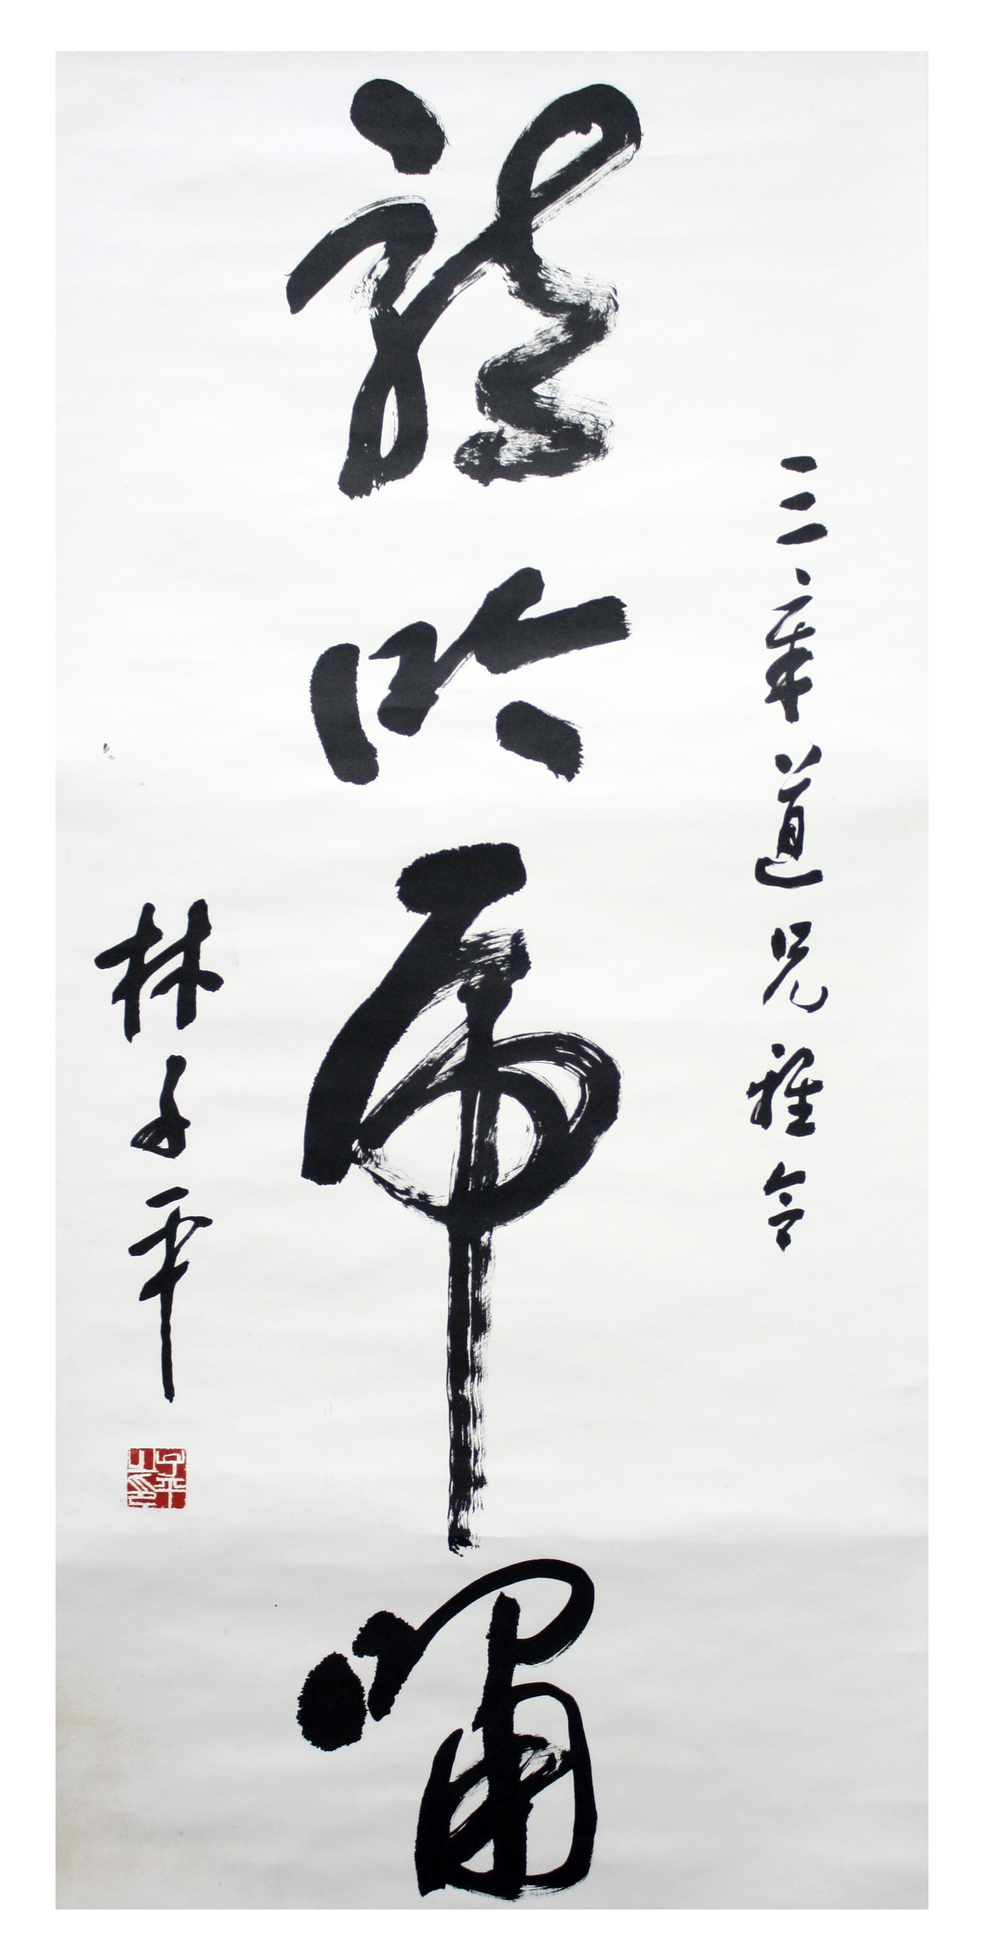 三章道兄雅令
龍吟虎嘯
林子平